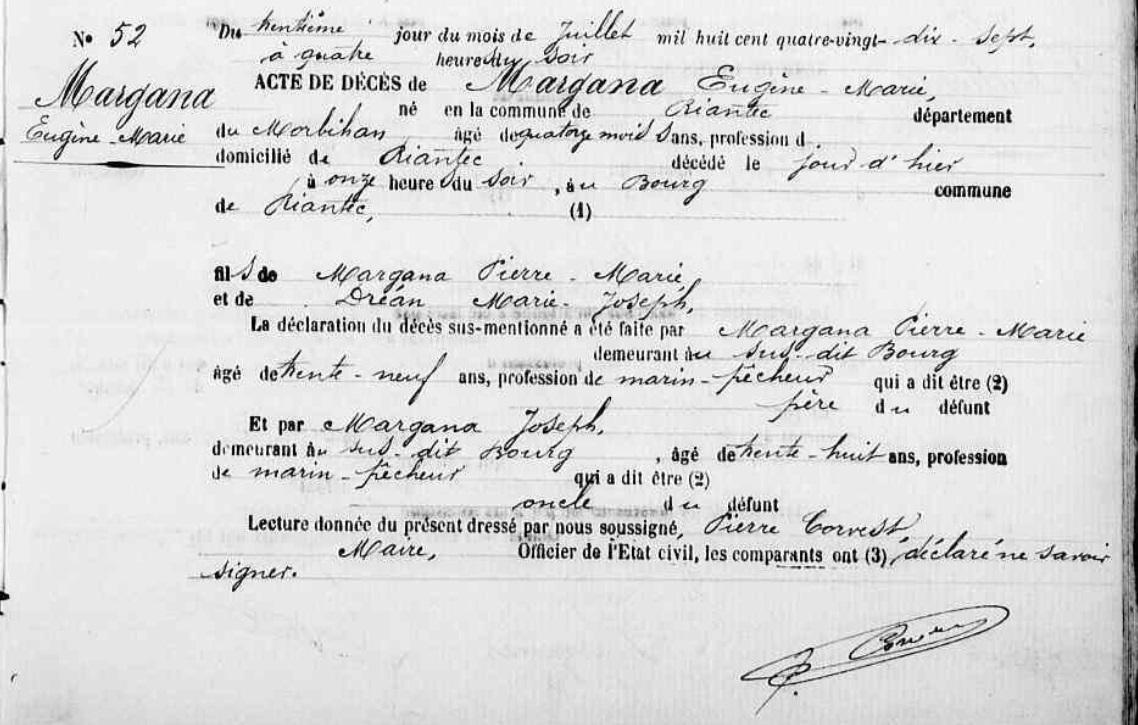 N° 52
Du trentième jour du mois de Juillet mil huit cent quatre-vingt-dix-sept,
à quatre heures du soir
ACTE DE DÉCÈS de Margana Eugène-Marie,
Margana
Eugène-Marie
né en la commune de Riantec département
du Morbihan âgé de quatorze mois ans, profession d
domicilié de Riantec décédé le jour d'hier
à onze heure du soir, au Bourg commune
de Riantec, (1)
fils de Margana Pierre-Marie,
et de Dréan Marie-Joseph,
La déclaration du décès sus-mentionné a été faite par Margana Pierre-Marie
demeurant au sus-dit Bourg
âgé de trente-neuf ans, profession de marin-pêcheur qui a dit être (2)
père du défunt
Et par Margana Joseph,
demeurant au sus-dit Bourg, âgé de trente-huit ans, profession
de marin-pêcheur qui a dit être (2)
oncle du défunt
Lecture donnée du présent dressé par nous soussigné, Pierre Corvest,
Maire, Officier de l'Etat civil, les comparants ont (3) déclaré ne savoir
signer.